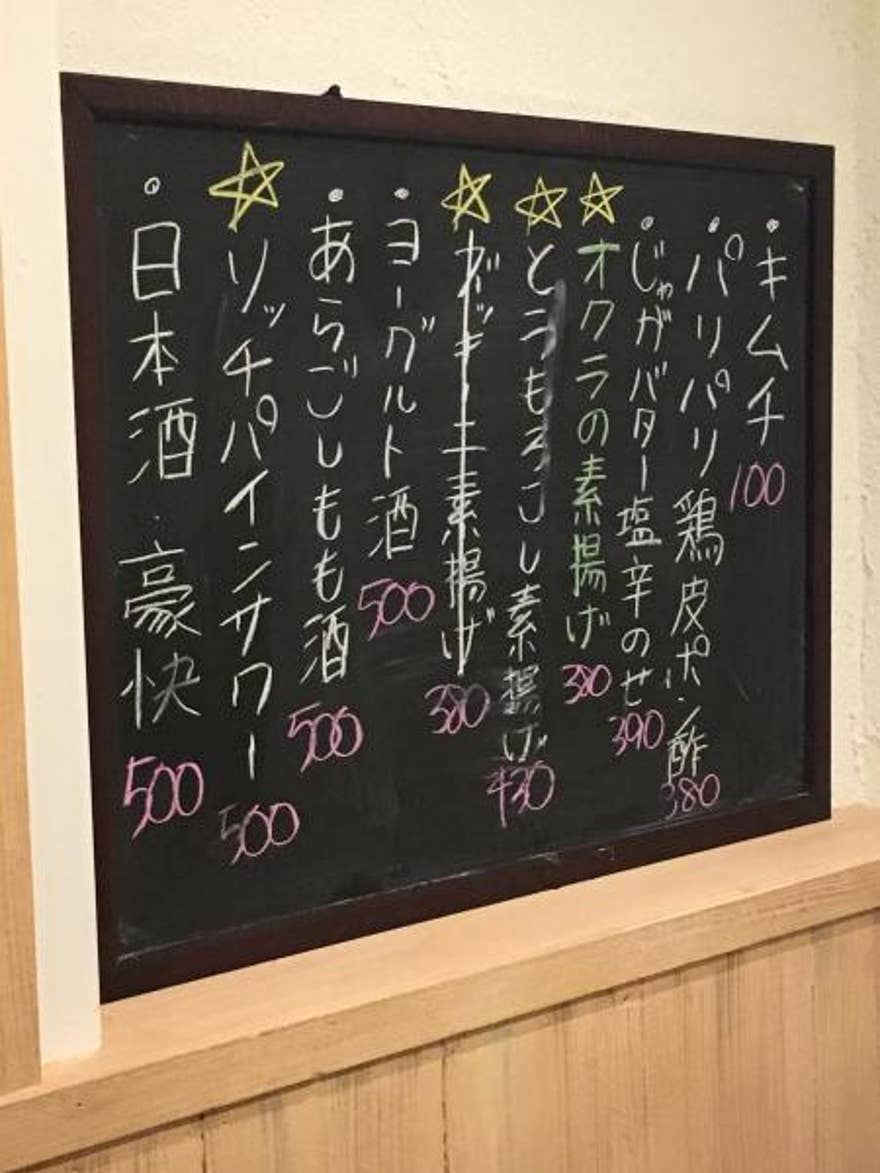 キムチ 100
パリパリ鶏皮ポン酢 380
じゃがバター塩辛のせ 390
オクラの素揚げ 380
とうもろこし素揚げ 430
ズッキーニ素揚げ 380
ヨーグルト酒 500
あらごしもも酒 500
リッチパインサワー 500
日本酒・豪快 500